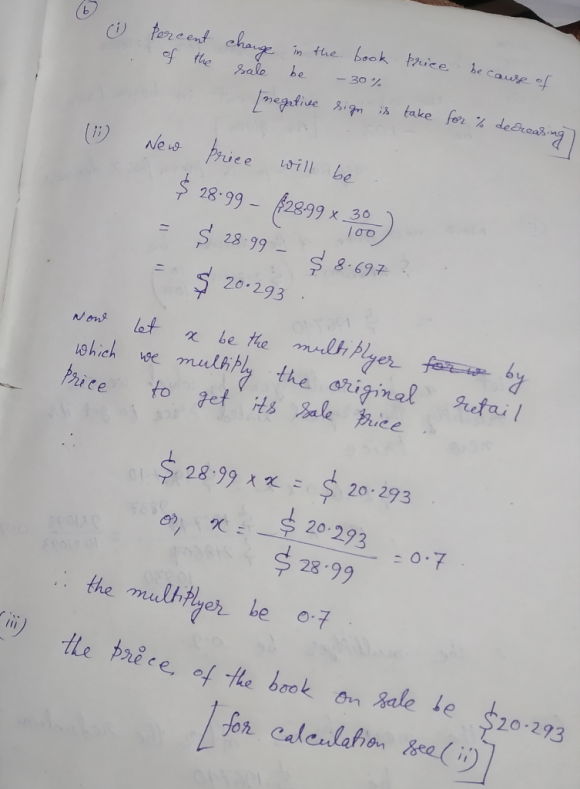 (b)
(i) Percent change in the book price because of
of the sale be -30%
[negative sign is take for % decreasing]
(ii) New price will be
$ 28.99 - ($28.99 × 30/100)
= $ 28.99 - $ 8.697
= $ 20.293.
Now let x be the multiplyer for w by
which we multiply the original retail
price to get its sale price.
∴ $ 28.99 × x = $ 20.293
or, x = $ 20.293 / $ 28.99 = 0.7
∴ the multiplyer be 0.7
(iii) the price of the book on sale be $20.293
[for calculation see (ii)]